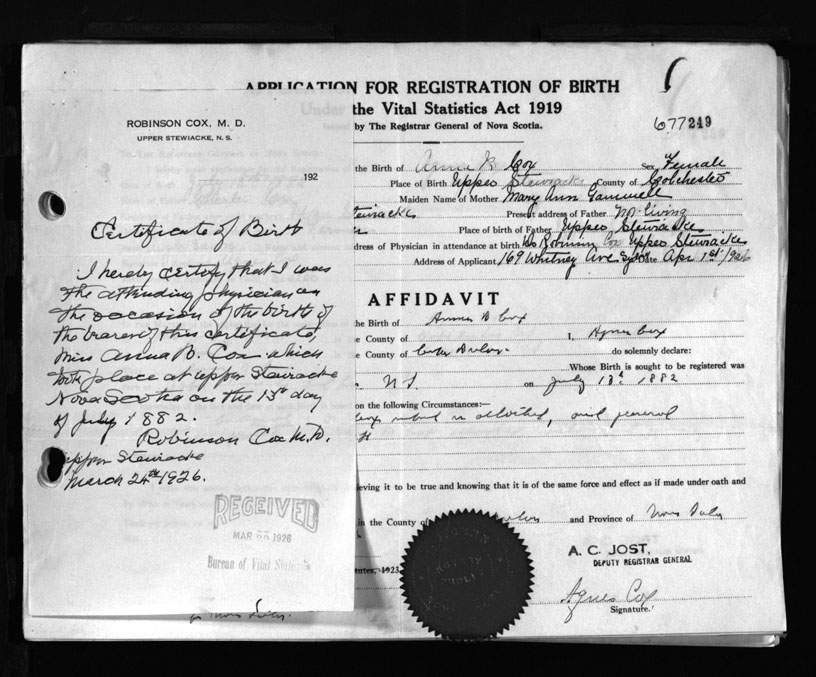 APPLICATION FOR REGISTRATION OF BIRTH
Under the Vital Statistics Act 1919
by The Registrar General of Nova Scotia.
677249
ROBINSON COX, M. D.
UPPER STEWIACKE, N. S.
192
Certificate of Birth
I hereby certify that I was
the attending physician on
the occasion of the birth of
the bearer of this certificate,
Miss Anna B. Cox which
took place at Upper Stewiacke
Nova Scotia on the 13th day
of July 1882.
Robinson Cox M.D.
Upper Stewiacke
March 24th 1926.
RECEIVED
MAR 1926
Bureau of Vital Statistics
the Birth of Anna B Cox Sex Female
Place of Birth Upper Stewiacke County of Colchester
Maiden Name of Mother Mary Ann Gammell
Stewiacke Present address of Father Not living
Place of birth of Father Upper Stewiacke
dress of Physician in attendance at birth Dr Robinson Cox Upper Stewiacke
Address of Applicant 169 Whitney Ave Sydney Date Apr 1st/926
AFFIDAVIT
the Birth of Anna B Cox
the County of I, Agnes Cox
the County of do solemnly declare:
Whose Birth is sought to be registered was
N S. on July 13th 1882
on the following Circumstances:—
and general
ieving it to be true and knowing that it is of the same force and effect as if made under oath and
in the County of and Province of Nova Scotia
A. C. JOST,
DEPUTY REGISTRAR GENERAL
tutes, 1923
NOTARY PUBLIC
Agnes Cox
Signature.